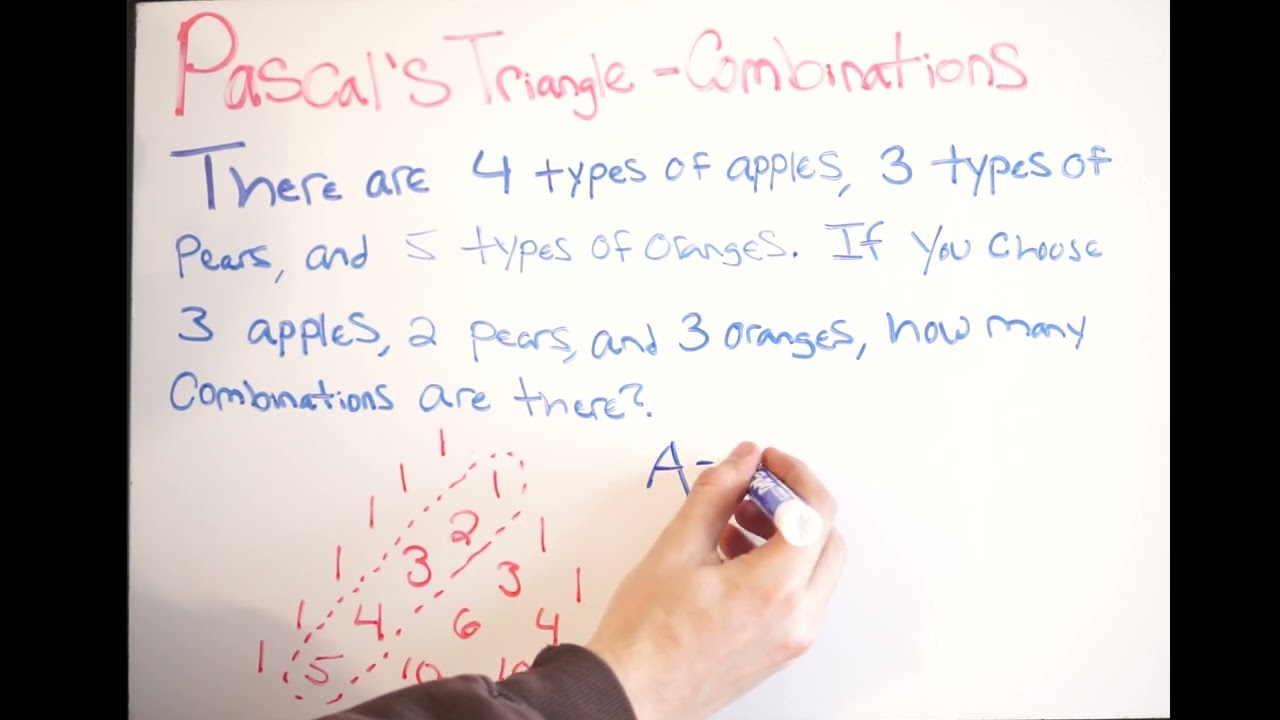 Pascal's Triangle - Combinations
There are 4 types of apples, 3 types of
Pears, and 5 types of oranges. If you choose
3 apples, 2 pears, and 3 oranges, how many
Combinations are there?
1
1 1
1 2 1
1 3 3 1
1 4 6 4
1 5 10 10
A -